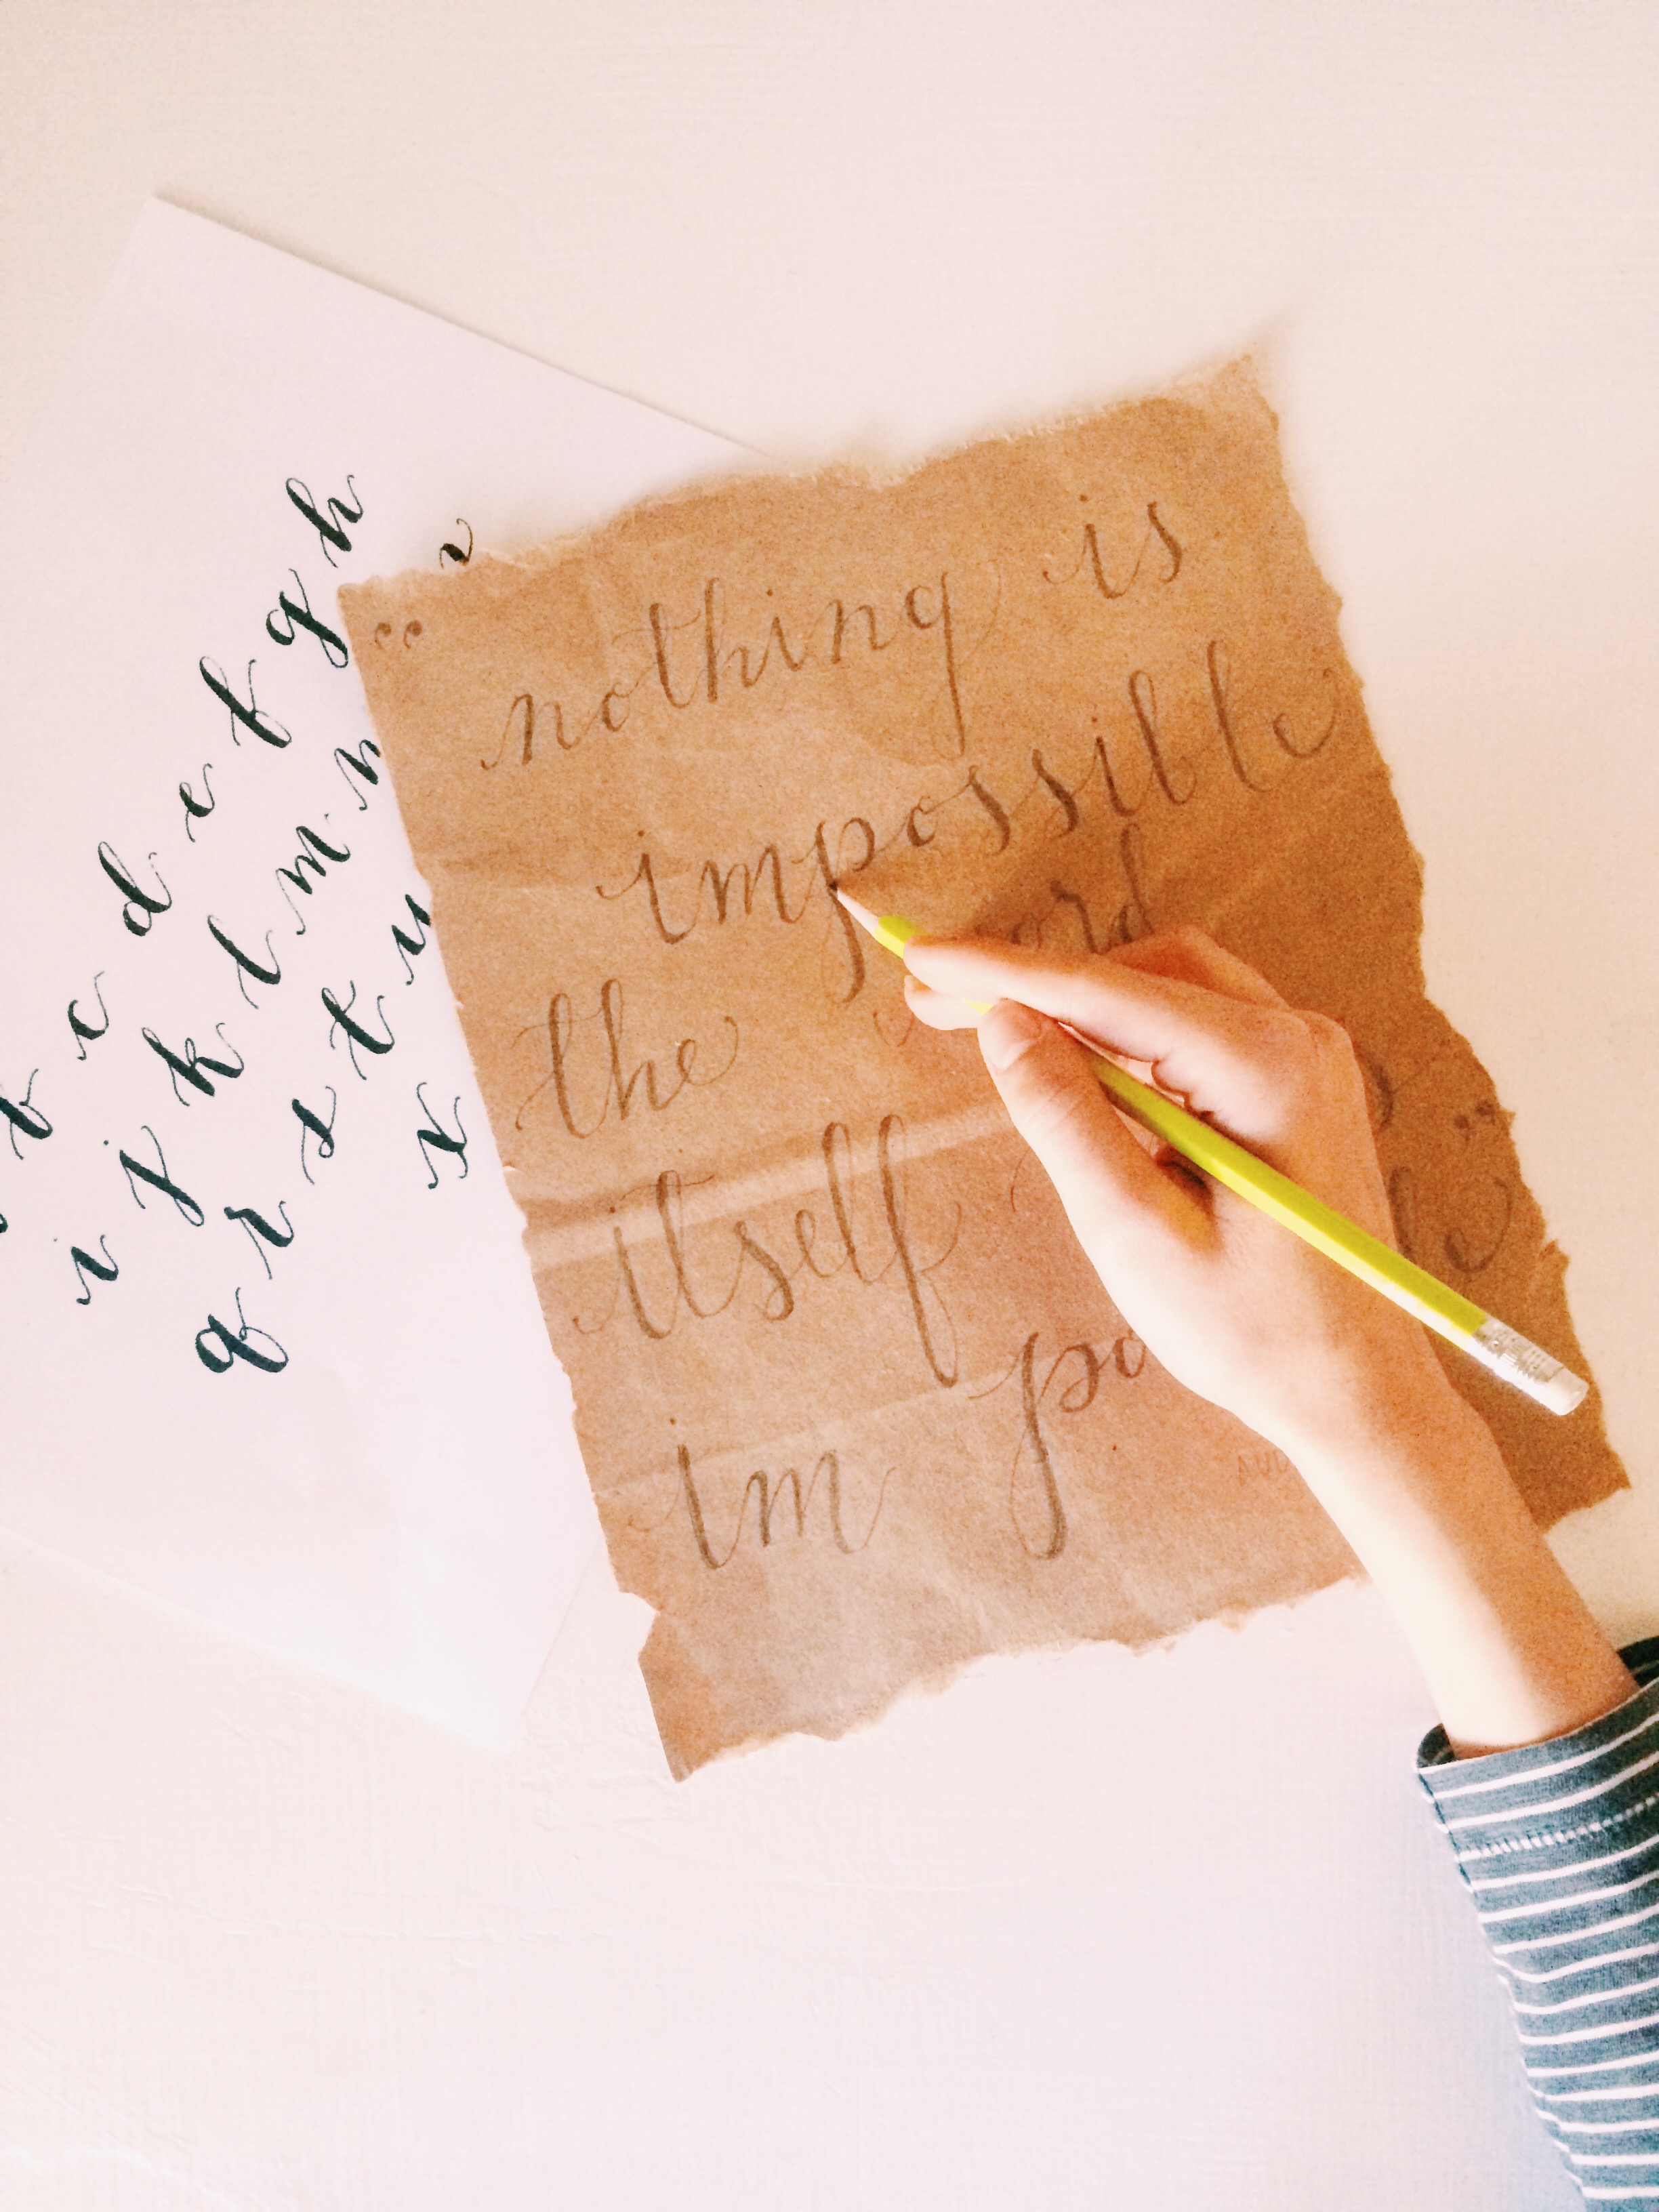 b c d e f g h
i j k l m n
q r s t u v
x
“
nothing is
impossible
the word
itself
im
”